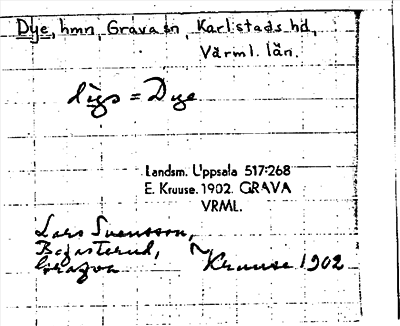 Dye, hmn, Grava sn, Karlstads hd,
Värml. län.
digs = Dye
Landsm. Uppsala 517:268
E. Kruuse. 1902. GRAVA
VRML.
Lars Svensson,
Grava
Kruuse 1902